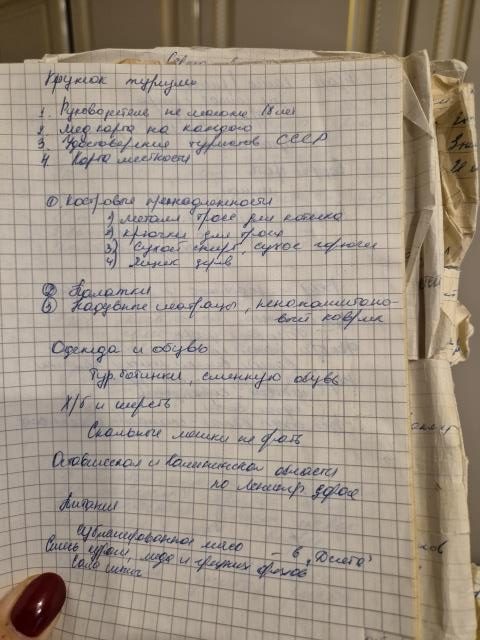 Кружок туризма
1. Руководитель не моложе 18 лет
2. Мед карта на каждого
3. Удостоверение туристов СССР
4. Карта местности
① Костровые принадлежности
1) металл трос для котелка
2) крючки для троса
3) Сухой спирт, сухое горючее
4) Ящик дров
② Палатки
③ Надувные матрацы, пенополиуретано-
вый коврик
Одежда и обувь
Тур. ботинки, сменную обувь
Х/б и шерсть
Спальные мешки не брать
и Калининская области
по Ленингр дороге
Питание
Сублимированное мясо – в "Диета"
Смесь кураги, меда и грецких орехов
Сало